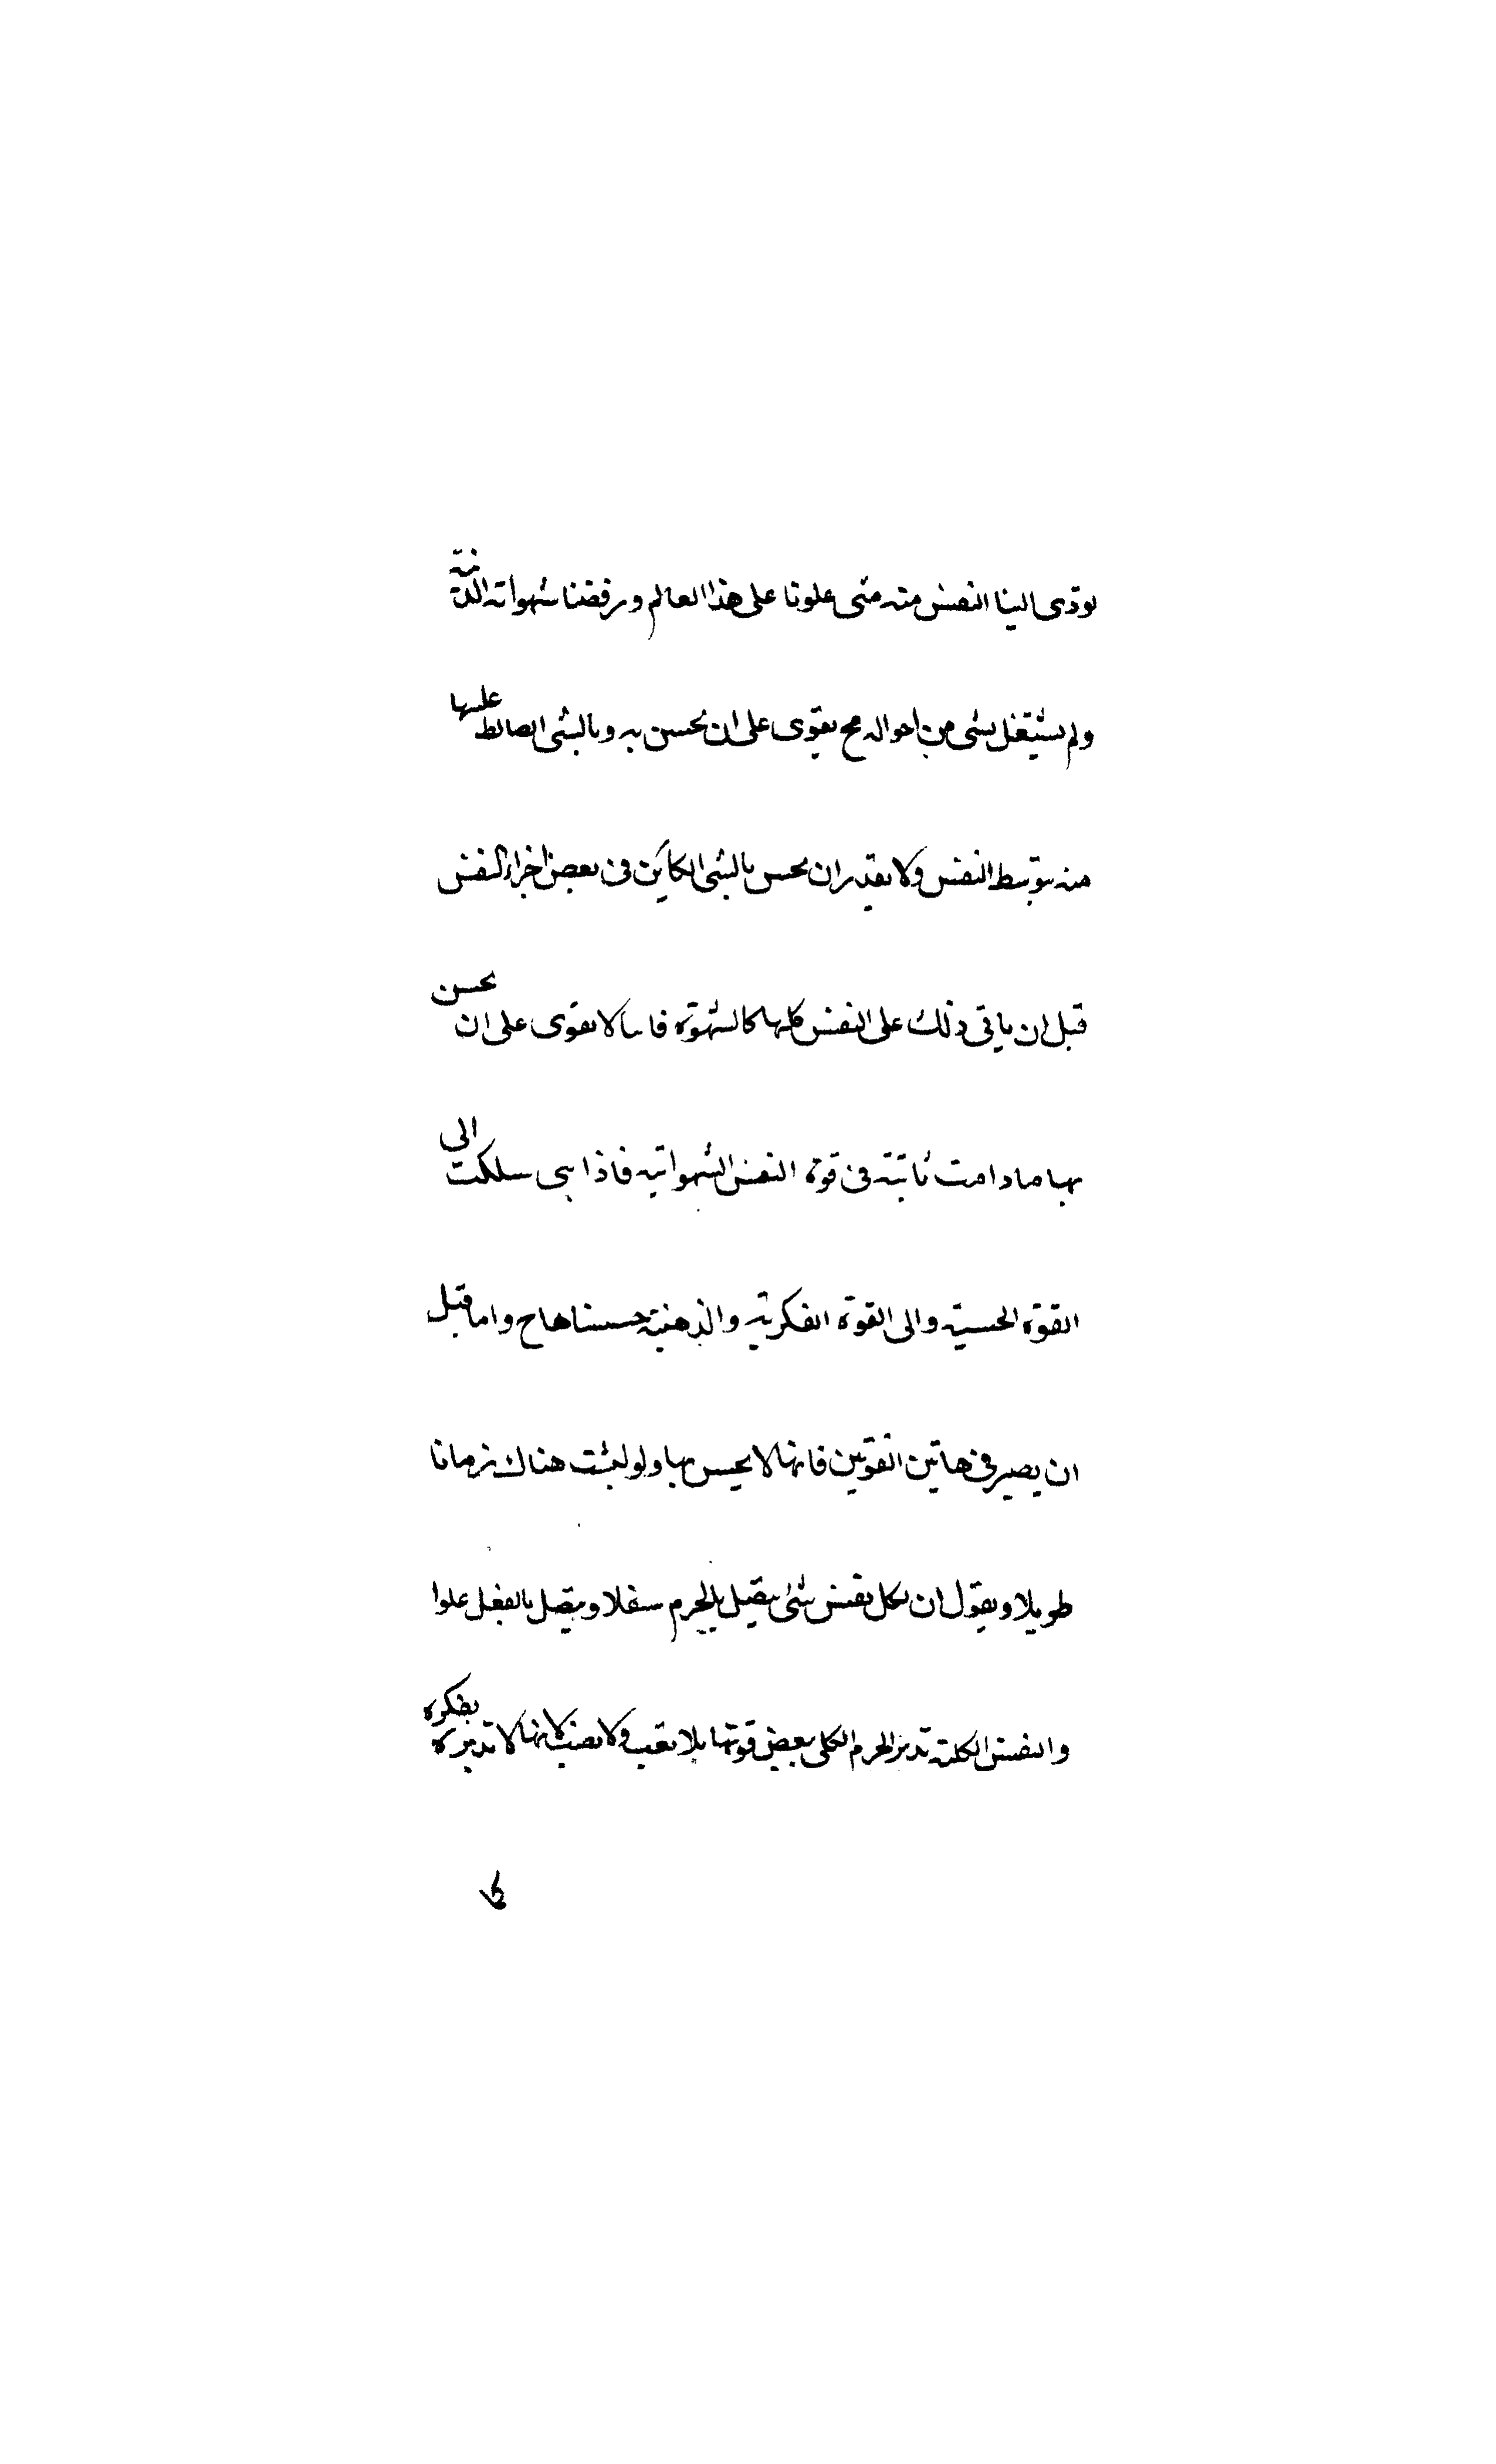 يودى الينا النفس منه متى علونا على هذا العالم ورفضنا شهواته الدنية
ولم نشتغل بشى من احواله مح نقوى على ان نحس به وبالشى الهابط علينا
منه بتوسط النفس ولا نقدر ان نحس بالشى الكاين فى بعض اجزاء النفس
قبل ان ياتى ذلك على النفس كلها كالشهوة فاننا لا نقوى على ان نحس
بها ما دامت ثابتة فى قوة النفس الشهوانية فاذا هى سلكت الى
القوة الحسية والى القوة الفكرية والذهنية حسسناها ح واما قبل
ان يصير فى هاتين القوتين فانها لا يحس بها ولو لبثت هناك زمانا
طويلا ونقول ان لكل نفس شئ يتصل بالجرم سفلا ويتصل بالعقل علوا
والنفس الكلية تدبر الجرم الكلى ببعض قوتها بلا تعب ولا نصب لانها لا تدبره بفكرة
كا